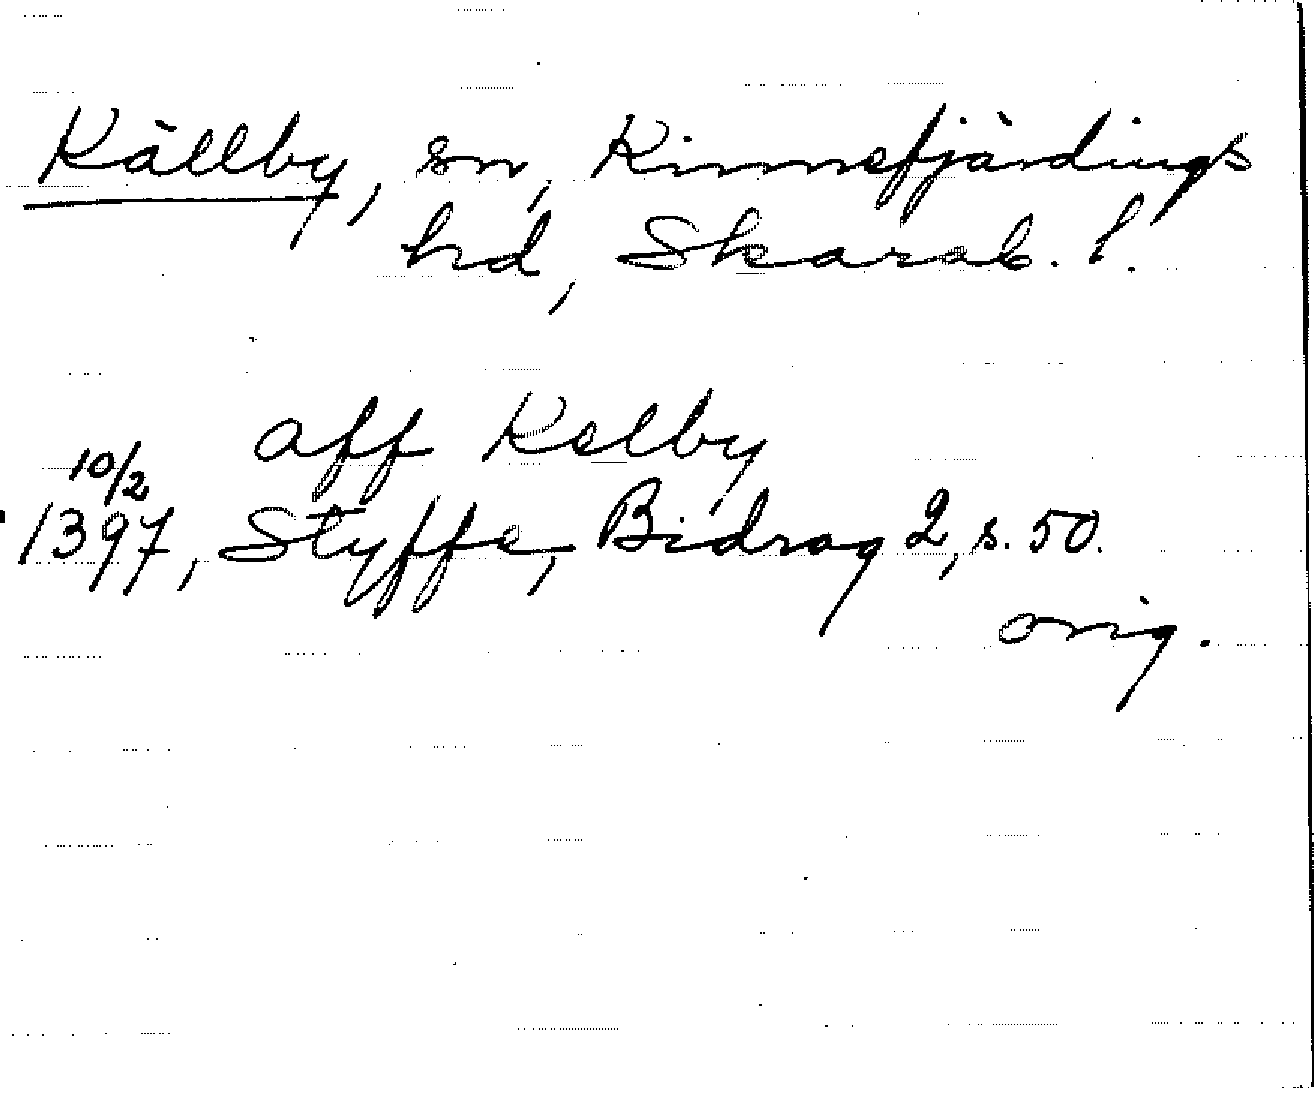 Källby, sn, Kinnefjärdings
hd, Skarab. l.
aff Kelby
10/2
1397, Styffe, Bidrag 2, s. 50.
orig.